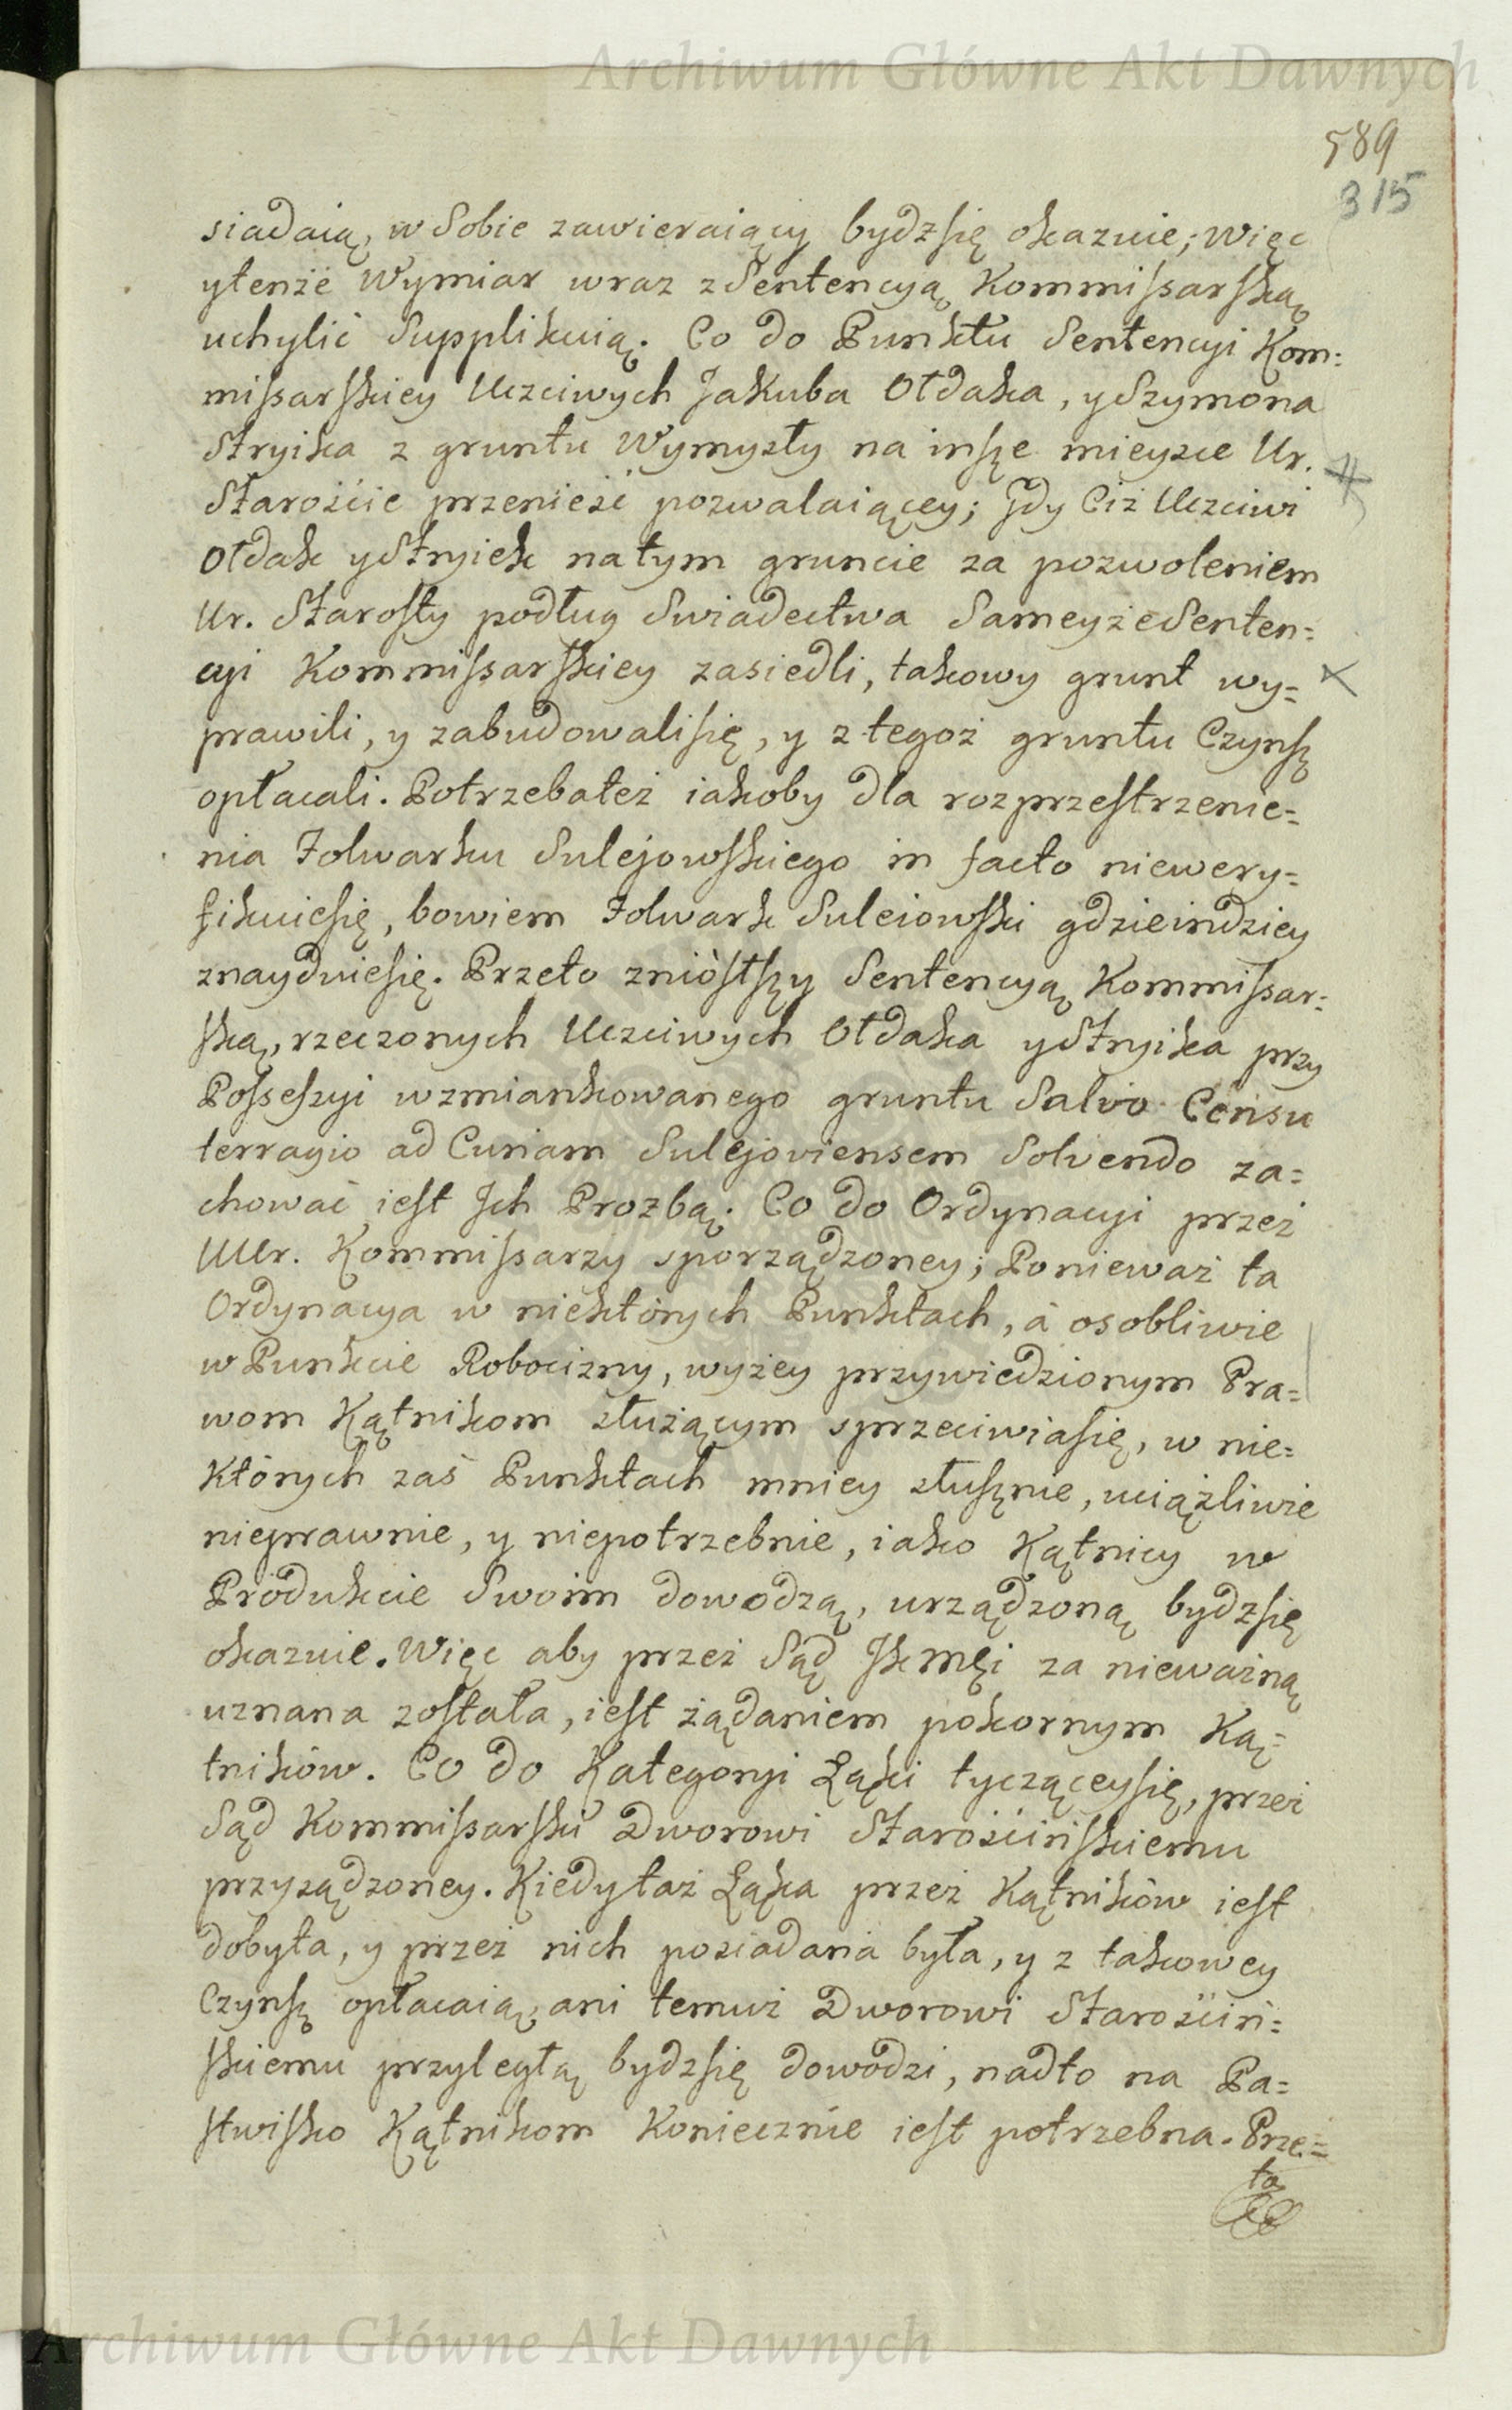 Archiwum Główne Akt Dawnych
589
315
siadaią, w Sobie zawieraiący bydzsię okazuie; Więc
ytenże Wymiar wraz z Sentencyą Kommissarską
uchylić Supplikuią. Co do Punktu Sentencyi Kom=
missarskiey Uczciwych Jakuba Ołdaka, y Szymona
Stryika z gruntu Wymyzły na insze mieysce Ur.
Starościе przenieść pozwalaiącey; Gdy Ciż Uczciwi
Ołdak y Stryiek natym gruncie za pozwoleniem
Ur. Starosty podług Swiadectwa Sameyże Senten=
cyi Kommissarskiey zasiedli, takowy grunt wy=
prawili, y zabudowalisię, y z tegoż gruntu Czynsz
opłacali. Potrzebateż iakoby dla rozprzestrzenie=
nia Folwarku Sulejowskiego in facto niewery=
fikuiesię, bowiem Folwark Suleiowski gdzieindziey
znayduiesię. Przeto zniósłszy Sentencyą Kommissar=
ską, rzeczonych Uczciwych Ołdaka y Stryika przy
Possessyi wzmiankowanego gruntu Salvo Censu
terragio ad Curiam Sulejoviensem Solvendo za=
chować iest Ich Prozbą. Co do Ordynacyi przez
UUr. Kommissarzy sporządzoney; Ponieważ ta
Ordynacya w niektórych Punktach, à osobliwie
w Punkcie Robocizny, wyżey przywiedzionym Pra=
wom Kątnikom służącym sprzeciwiasię, w nie=
których zaś Punktach mniey słusznie, uciążliwie
nieprawnie, y niepotrzebnie, iako Kątnicy w
Produkcie Swoim dowodzą, urządzoną bydzsię
okazuie. Więc aby przez Sąd JKMci za nieważną
uznana została, iest żądaniem pokornym Ką=
tników. Co do Kategoryi Łąki tyczącéysię, przez
Sąd Kommissarski Dworowi Starościńskiemu
przysądzoney. Kiedy taż Łąka przez Kątników iest
dobyta, y przez nich posiadana była, y z takowey
Czynsz opłacaią, ani temuż Dworowi Starościń=
skiemu przyległą bydzsię dowodzi, nadto na Pa=
stwisko Kątnikom Koniecznie iest potrzebna. Prze=
to
Archiwum Główne Akt Dawnych